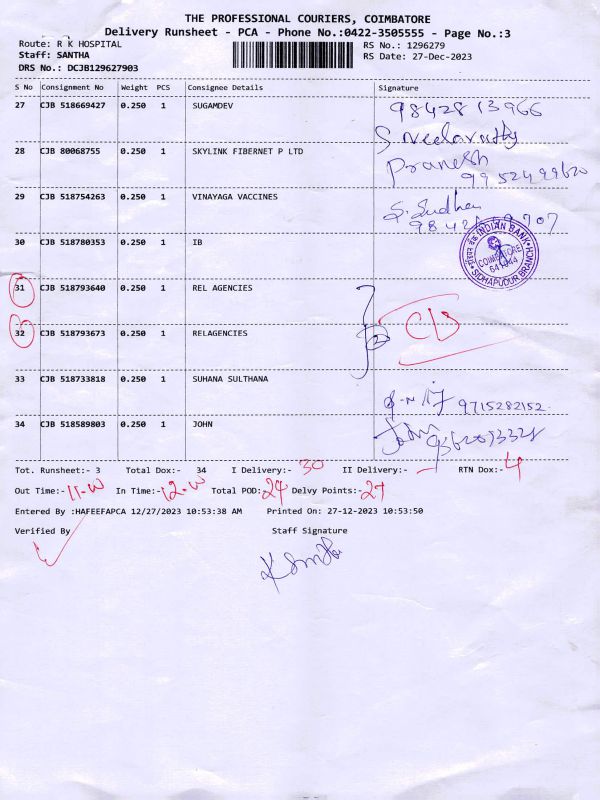 THE PROFESSIONAL COURIERS, COIMBATORE
Delivery Runsheet - PCA - Phone No.:0422-3505555 - Page No.:3
Route: R K HOSPITAL RS No.: 1296279
Staff: SANTHA RS Date: 27-Dec-2023
DRS No.: DCJB129627903
S No Consignment No Weight PCS Consignee Details Signature
27 CJB 518669427 0.250 1 SUGAMDEV 9842813966
28 CJB 80068755 0.250 1 SKYLINK FIBERNET P LTD Pranesh
9952499620
29 CJB 518754263 0.250 1 VINAYAGA VACCINES S. Sudha
30 CJB 518780353 0.250 1 IB
INDIAN BANK
COIMBATORE
641044
SIDHAPUDUR BRANCH
31 CJB 518793640 0.250 1 REL AGENCIES
32 CJB 518793673 0.250 1 RELAGENCIES 2 C/B
33 CJB 518733818 0.250 1 SUHANA SULTHANA 9715282152
34 CJB 518589803 0.250 1 JOHN John
Tot. Runsheet:- 3 Total Dox:- 34 I Delivery:- 30 II Delivery:- - RTN Dox:- 4
Out Time:- In Time:- Total POD: Delvy Points:- 27
Entered By :HAFEEFAPCA 12/27/2023 10:53:38 AM Printed On: 27-12-2023 10:53:50
Verified By Staff Signature